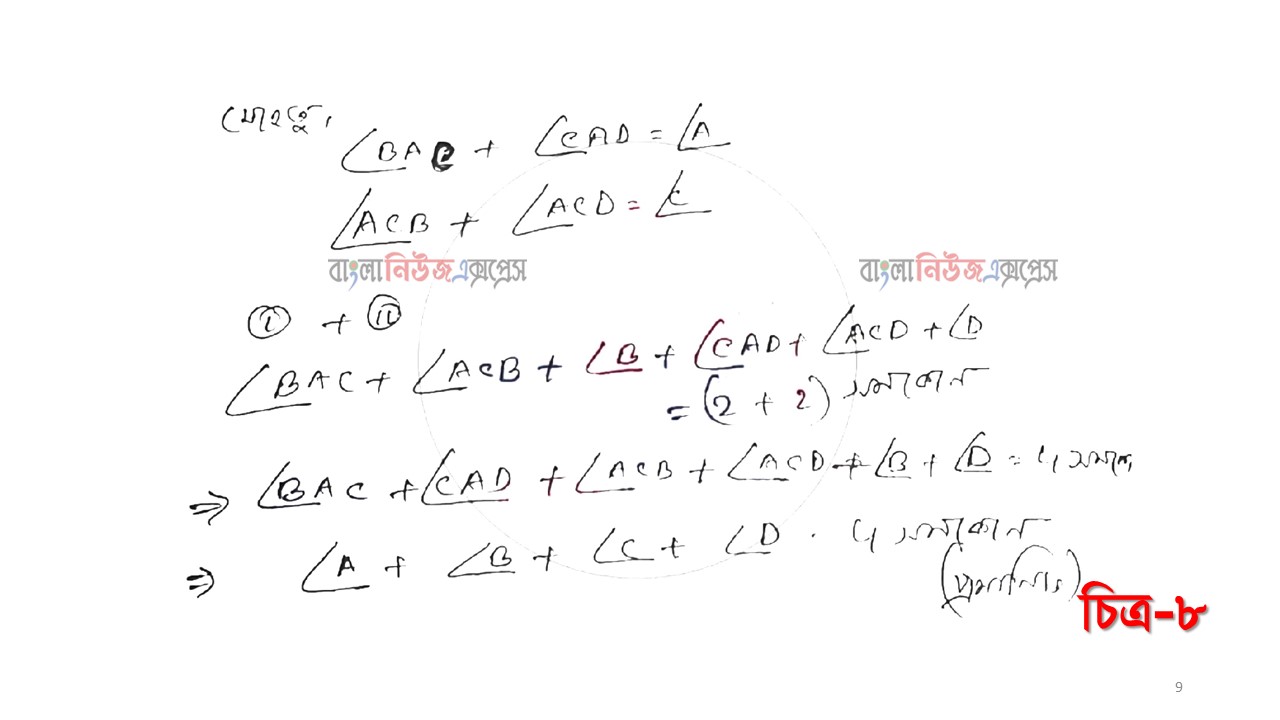 যেহেতু,
∠BAC + ∠CAD = ∠A
∠ACB + ∠ACD = ∠C
বাংলা নিউজ এক্সপ্রেস বাংলা নিউজ এক্সপ্রেস
(i) + (ii)
∠BAC + ∠ACB + ∠B + ∠CAD + ∠ACD + ∠D
= (2 + 2) সমকোণ
⇒ ∠BAC + ∠CAD + ∠ACB + ∠ACD + ∠B + ∠D = 4
⇒ ∠A + ∠B + ∠C + ∠D . 4 সমকোণ
(প্রমাণিত)
চিত্র-৮
9